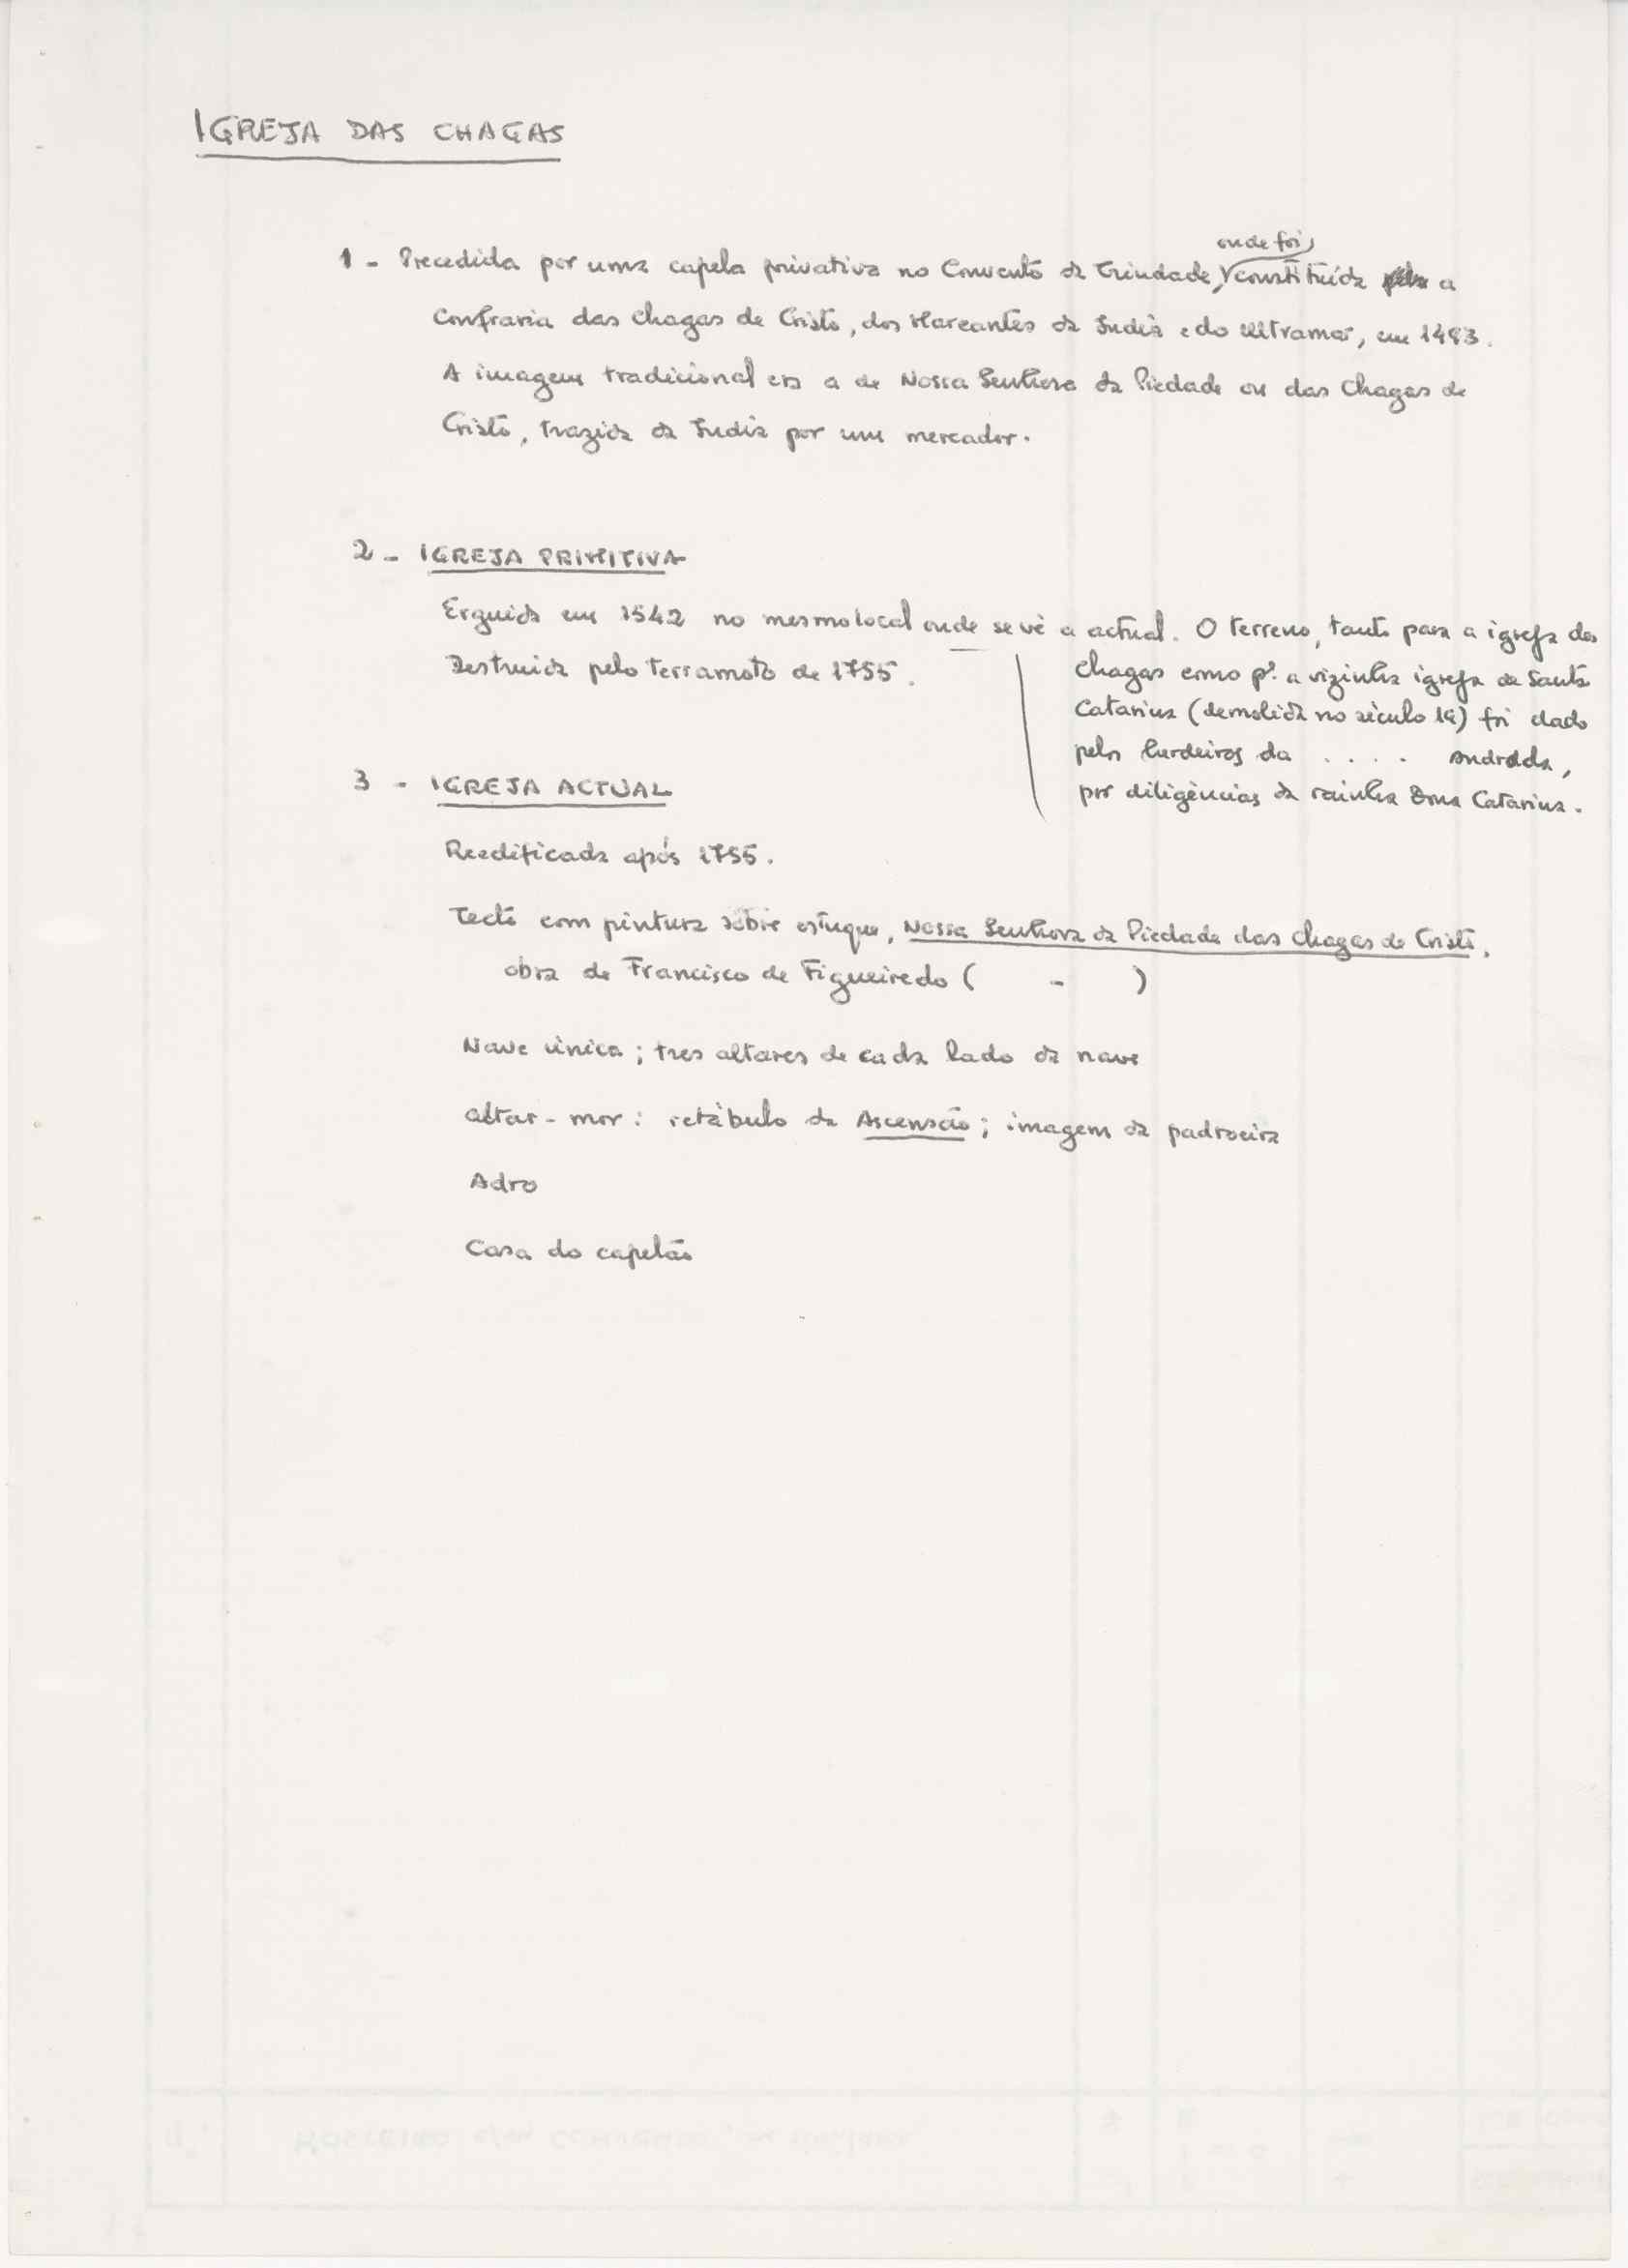 IGREJA DAS CHAGAS
onde foi
1 - Precedida por uma capela privativa no Convento da Trindade, constituída a
confraria das Chagas de Cristo, dos Mareantes da India e do Ultramar, em 1493.
A imagem tradicional era a de Nossa Senhora da Piedade ou das Chagas de
Cristo, trazida da India por um mercador.
2 - IGREJA PRIMITIVA
Erguida em 1542 no mesmo local onde se vê a actual. O terreno, tanto para a igreja das
Destruida pelo terramoto de 1755.
Chagas como pª. a vizinha igreja de Santa
Catarina (demolida no século 19) foi dado
pelos herdeiros da . . . . Andrada,
por diligências da rainha Dona Catarina.
3 - IGREJA ACTUAL
Reedificada após 1755.
Tecto com pintura sobre estuque, Nossa Senhora da Piedade das Chagas de Cristo,
obra de Francisco de Figueiredo ( - )
Nave única; tres altares de cada lado da nave
altar-mor: retábulo da Ascensão; imagem da padroeira
Adro
Casa do capelão